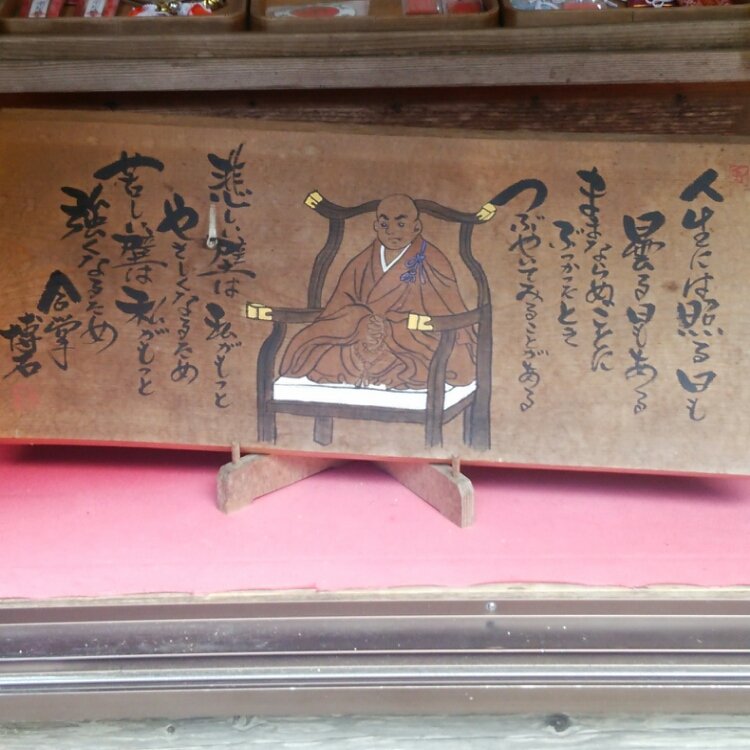 人生には照る日も
曇る日もある
ままならぬことに
ぶつかるとき
つぶやいてみることがある
悲しい壁は私がもっと
やさしくなるため
苦しい壁は私がもっと
強くなるため
合掌